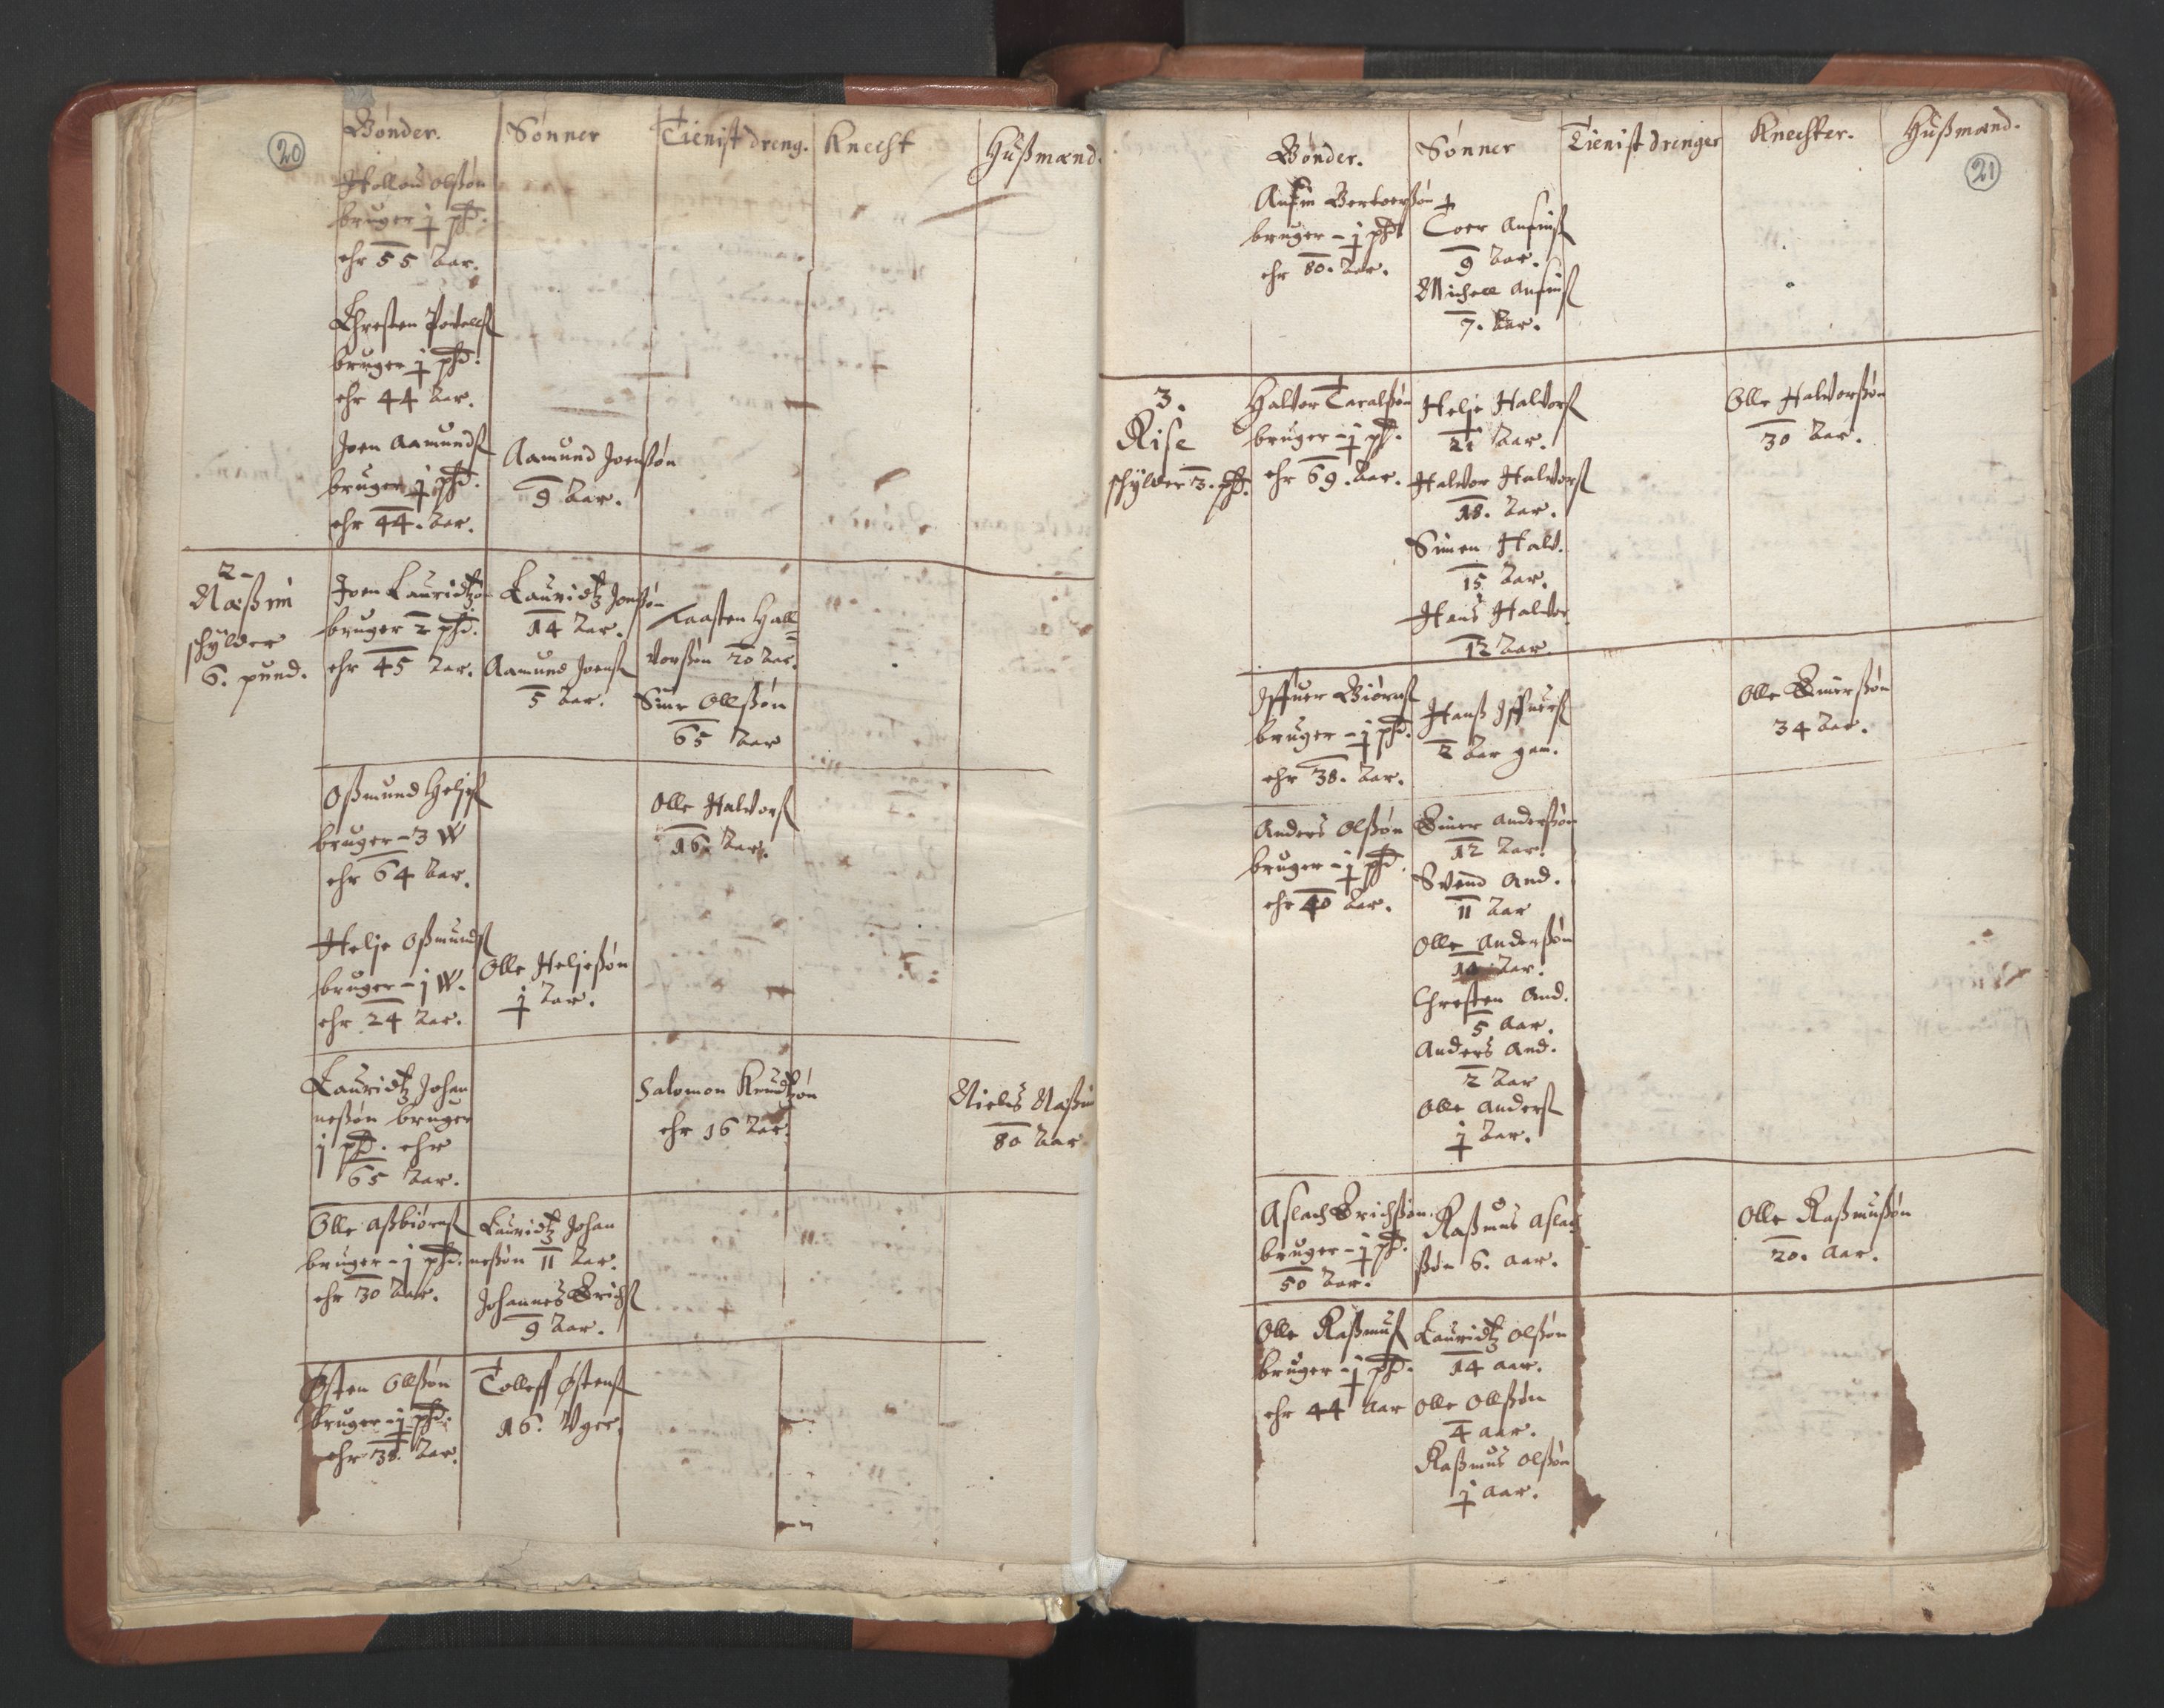 20
Bønder.
Sønner
Tienist dreng.
Knecht
Hüßmænd.
Olßøn
bruger j phd.
ehr 55 Aar.
Chresten Povelß
bruger j phd.
ehr 44 Aar.
Joen Aamundß
bruger j phd.
ehr 44. Aar.
Aamund Joenßøn
9 Aar.
2
Næßim
schylder
6. pund.
Joen Lauridtzøn
bruger 2 phd.
ehr 45 Aar.
Lauridtz Jonßøn
14 Aar.
Aamund Joenß
5 Aar.
Taasten Hall=
vorßøn 20 Aar.
Ollßøn
65 Aar
Oßmund Heljeß
bruger - 3 W
ehr 64 Aar.
Olle Halvorß
16. Aar.
Helje Oßmundß
bruger - j W.
ehr 24 Aar.
Olle Heljeßøn
j Aar.
Lauridtz Johan
neßøn bruger
j phd. ehr
65 Aar.
Salomon Knudtzøn
ehr 16 Aar.
Niels Naßim
80 Aar
Olle Aßbiørnß
bruger - j phd.
ehr 30 Aar.
Lauridtz Johan
neßøn 11 Aar.
Johannes Erichß
9 Aar.
Østen Ollßøn
bruger - j phd.
ehr 38. Aar.
Tolleff Østenß
16. Vger.
21
Bønder.
Sønner
Tienist drenger
Knechter.
Hüßmænd.
Anfin
bruger - j phd
ehr 80. Aar.
Toer Anfinß
9 Aar.
Michell Anfinß
7. Aar.
3.
Rise
schylder 3. phd.
Halvor Taralßøn
bruger - j pd.
ehr 69. Aar.
Helje Halvorß
21 Aar.
Halvor Halvorß
18. Aar.
Simen Halv.
15 Aar.
Hans Halvor
12 Aar.
Olle Halvorßøn
30 Aar.
Iffuer Biørnß
bruger - j phd.
ehr 38. Aar.
Hanß Iffuerß
2 Aar gam.
Olle Einerßøn
34 Aar.
Anders Olßøn
bruger - j phd.
ehr 40 Aar.
Einer Anderßøn
12 Aar.
Svend And.
11 Aar
Olle Anderßøn
10 Aar.
Chresten And.
5 Aar.
Anders And.
2 Aar
Olle Anderß
j Aar.
Aslach Erichßøn.
bruger - j phd.
50 Aar.
Raßmus Aslach
ßøn 6. Aar.
Olle Raßmusßøn
20. Aar.
Olle Raßmuß
bruger - j phd.
ehr 44 Aar
Lauridtz Olßøn
14 Aar.
Olle Ollßøn
4 Aar.
Raßmus Olßøn
j Aar.